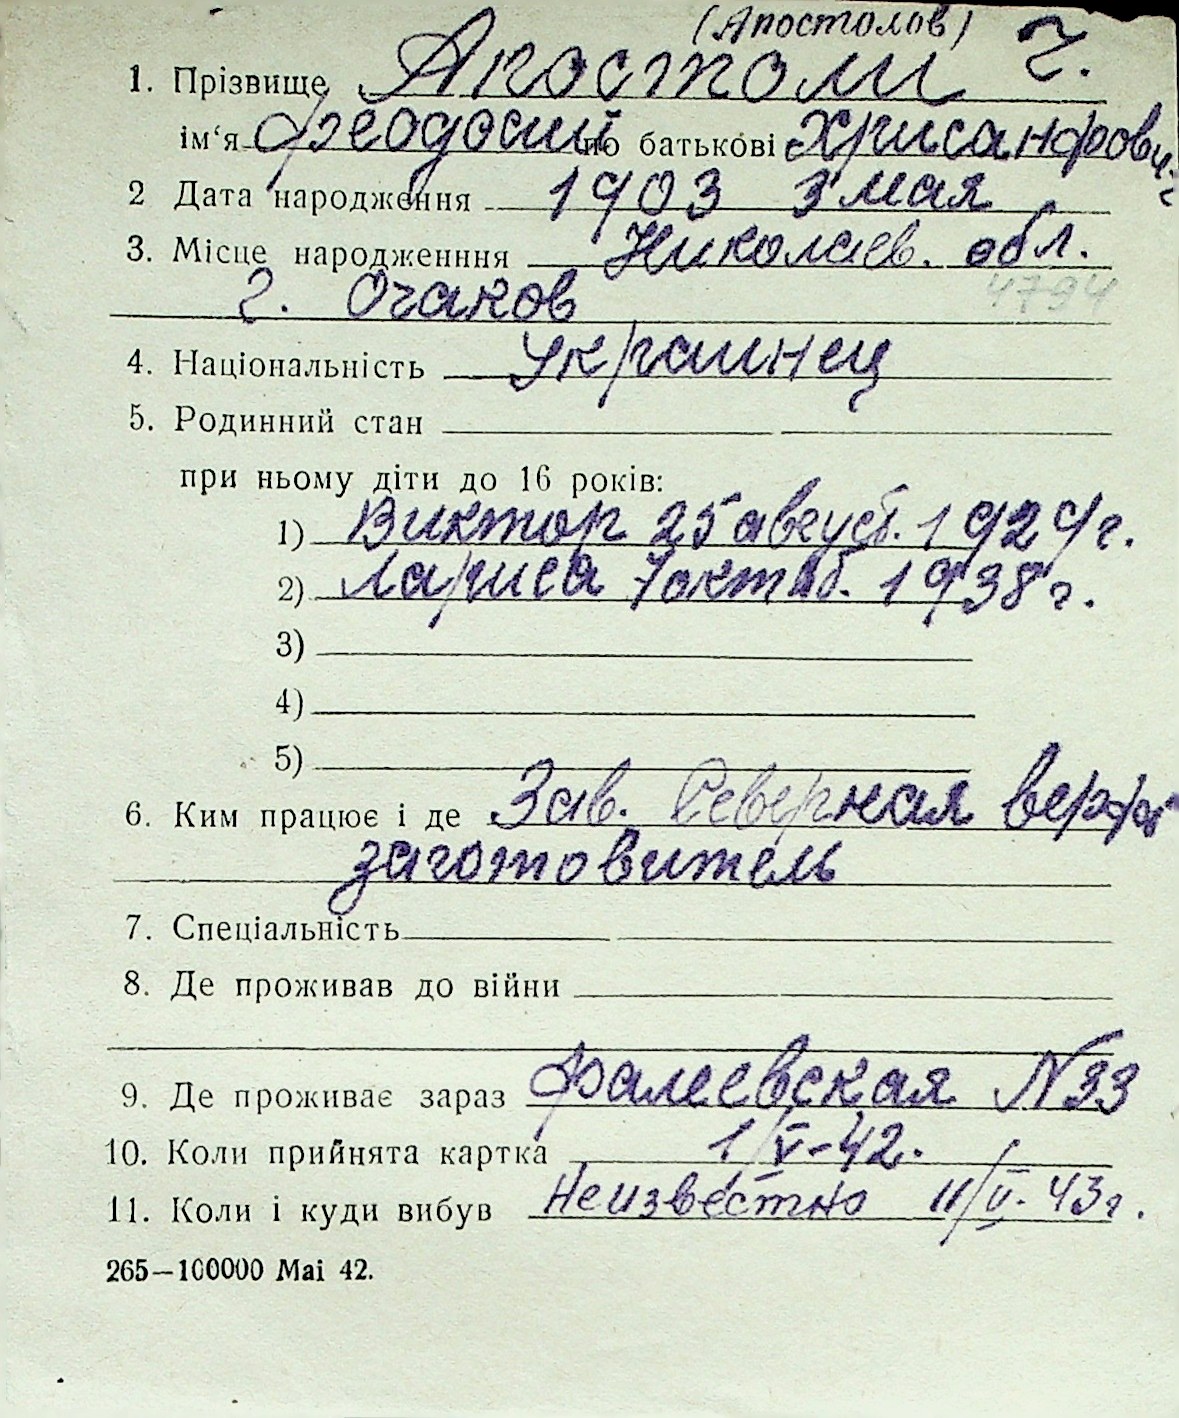 (Апостолов)
1. Прізвище Апостоли Г.
ім'я Феодосий по батькові Хрисанфович
2 Дата народження 1903 3 мая
3. Місце народженння Николаев. обл.
4794
г. Очаков
4. Національність Украинец
5. Родинний стан
при ньому діти до 16 років:
1) Виктор 25 август. 1929 г.
2) Лариса 7 октяб. 1938 г.
3)
4)
5)
6. Ким працює і де Зав. Северная верфь
заготовитель
7. Спеціальність
8. Де проживав до війни
9. Де проживає зараз Фалеевская N 33
10. Коли прийнята картка 1/V-42.
11. Коли і куди вибув Неизвестно 11/V. 43г.
265—100000 Mai 42.